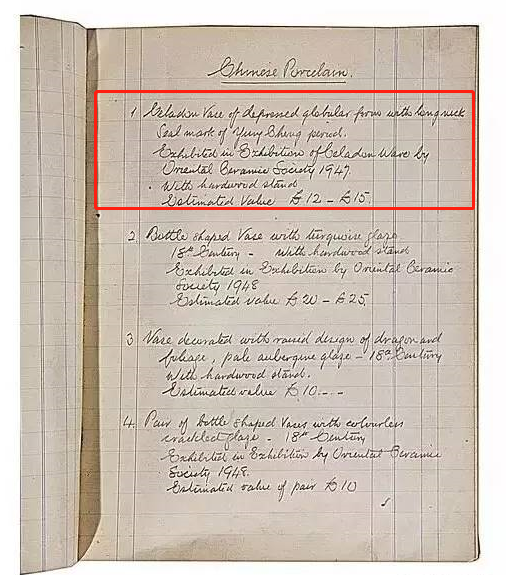 Chinese Porcelain.
1 Celadon Vase of depressed globular form with long neck
Seal mark of Yung Cheng period.
Exhibited in Exhibition of Celadon Ware by
Oriental Ceramic Society 1947.
With hardwood stand
Estimated Value £12 - £15.
2. Bottle shaped Vase with turquoise glaze
18th Century - With hardwood stand
Exhibited in Exhibition by Oriental Ceramic
Society 1948
Estimated value £20 - £25.
3 Vase decorated with raised design of dragon and
foliage, pale aubergine glaze - 18th Century
With hardwood stand.
Estimated value £10.--
4. Pair of bottle shaped Vases with colourless
crackled glaze - 18th Century
Exhibited in Exhibition by Oriental Ceramic
Society 1948.
Estimated value of pair £10